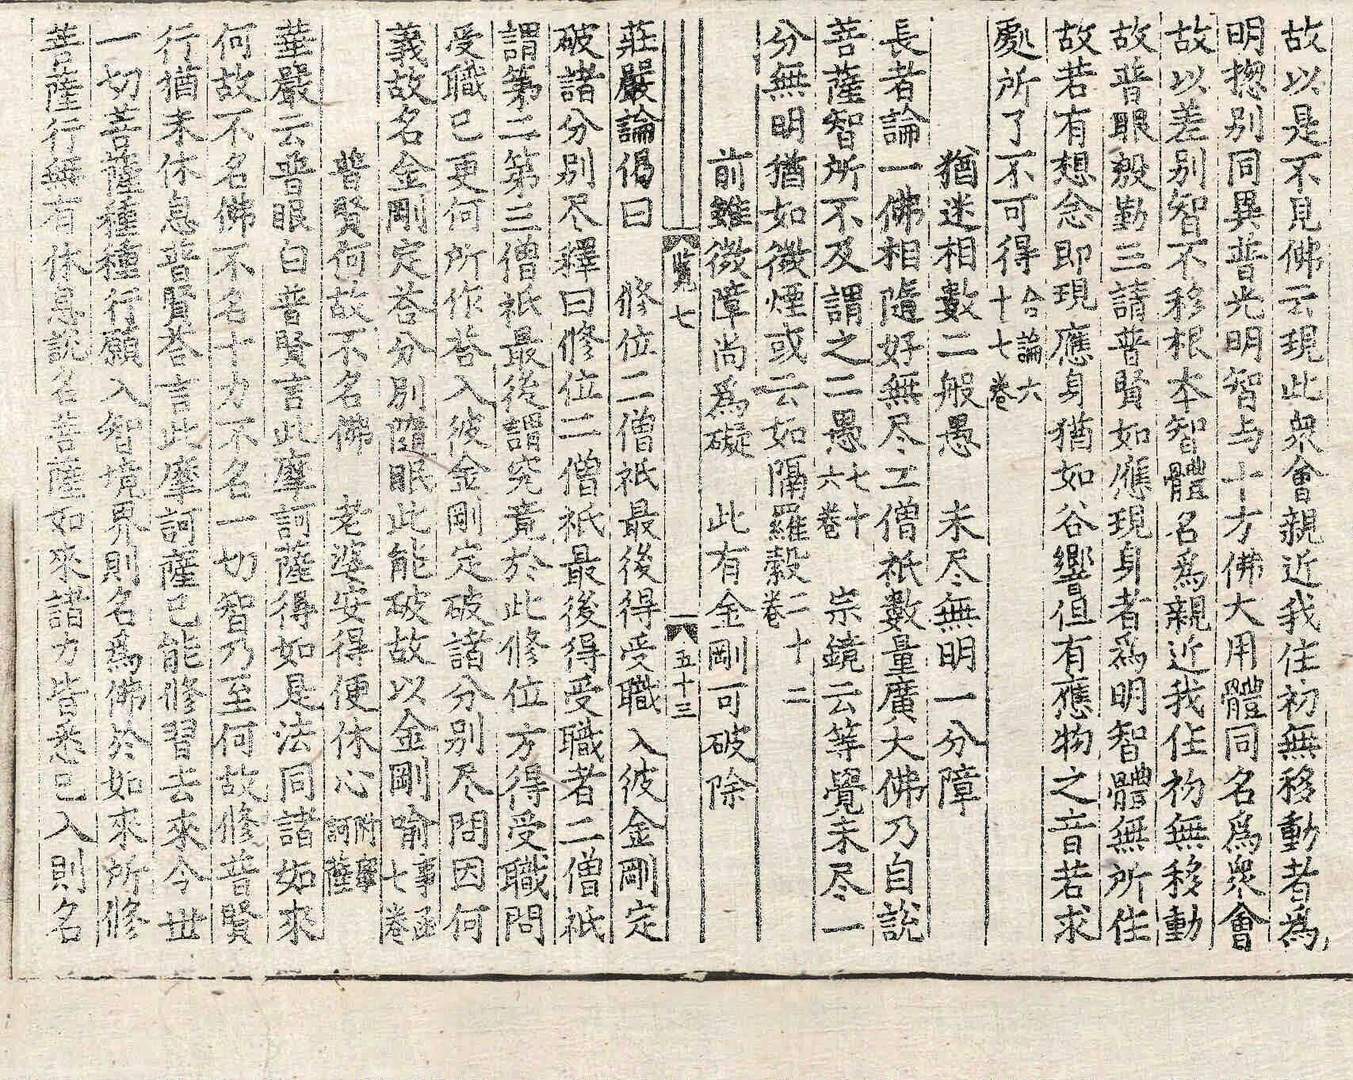 故以是不見佛云現此衆會親近我住初無移動者為
明揔別同異普光明智与十方佛大用體同名爲衆會
故以差別智不移根本智體名爲親近我住初無移動
故普眼慇勤三請普賢如應現身者為明智體無所住
故若有想念即現應身猶如谷響但有應物之音若求
處所了不可得合論六十七卷
猶迷相數二般愚　未尽無明一分障
長者論一佛相隨好無尽二僧祇數量廣大佛乃自說
菩薩智所不及謂之二愚七十六卷　宗鏡云等覺未尽一
分無明猶如微煙或云如隔羅縠二十二卷
前雖微障尚爲礙　此有金剛可破除
覽七　五十三
莊嚴論偈曰　修位二僧祇最後得受職入彼金剛定
破諸分別尽釋曰修位二僧祇最後得受職者二僧祇
謂第二第三僧祇最後謂究竟於此修位方得受職問
受職已更何所作答入彼金剛定破諸分別尽問因何
義故名金剛定荅分別隨眠此能破故以金剛喻事函七卷
普賢何故不名佛　老婆安得便休心附摩訶薩
華嚴云普眼白普賢言此摩訶薩得如是法同諸如來
何故不名佛不名十力不名一切智乃至何故修普賢
行猶未休息普賢荅言此摩訶薩已能修習去來今世
一切菩薩種種行願入智境界則名爲佛於如來所修
菩薩行無有休息說名菩薩如來諸力皆悉已入則名